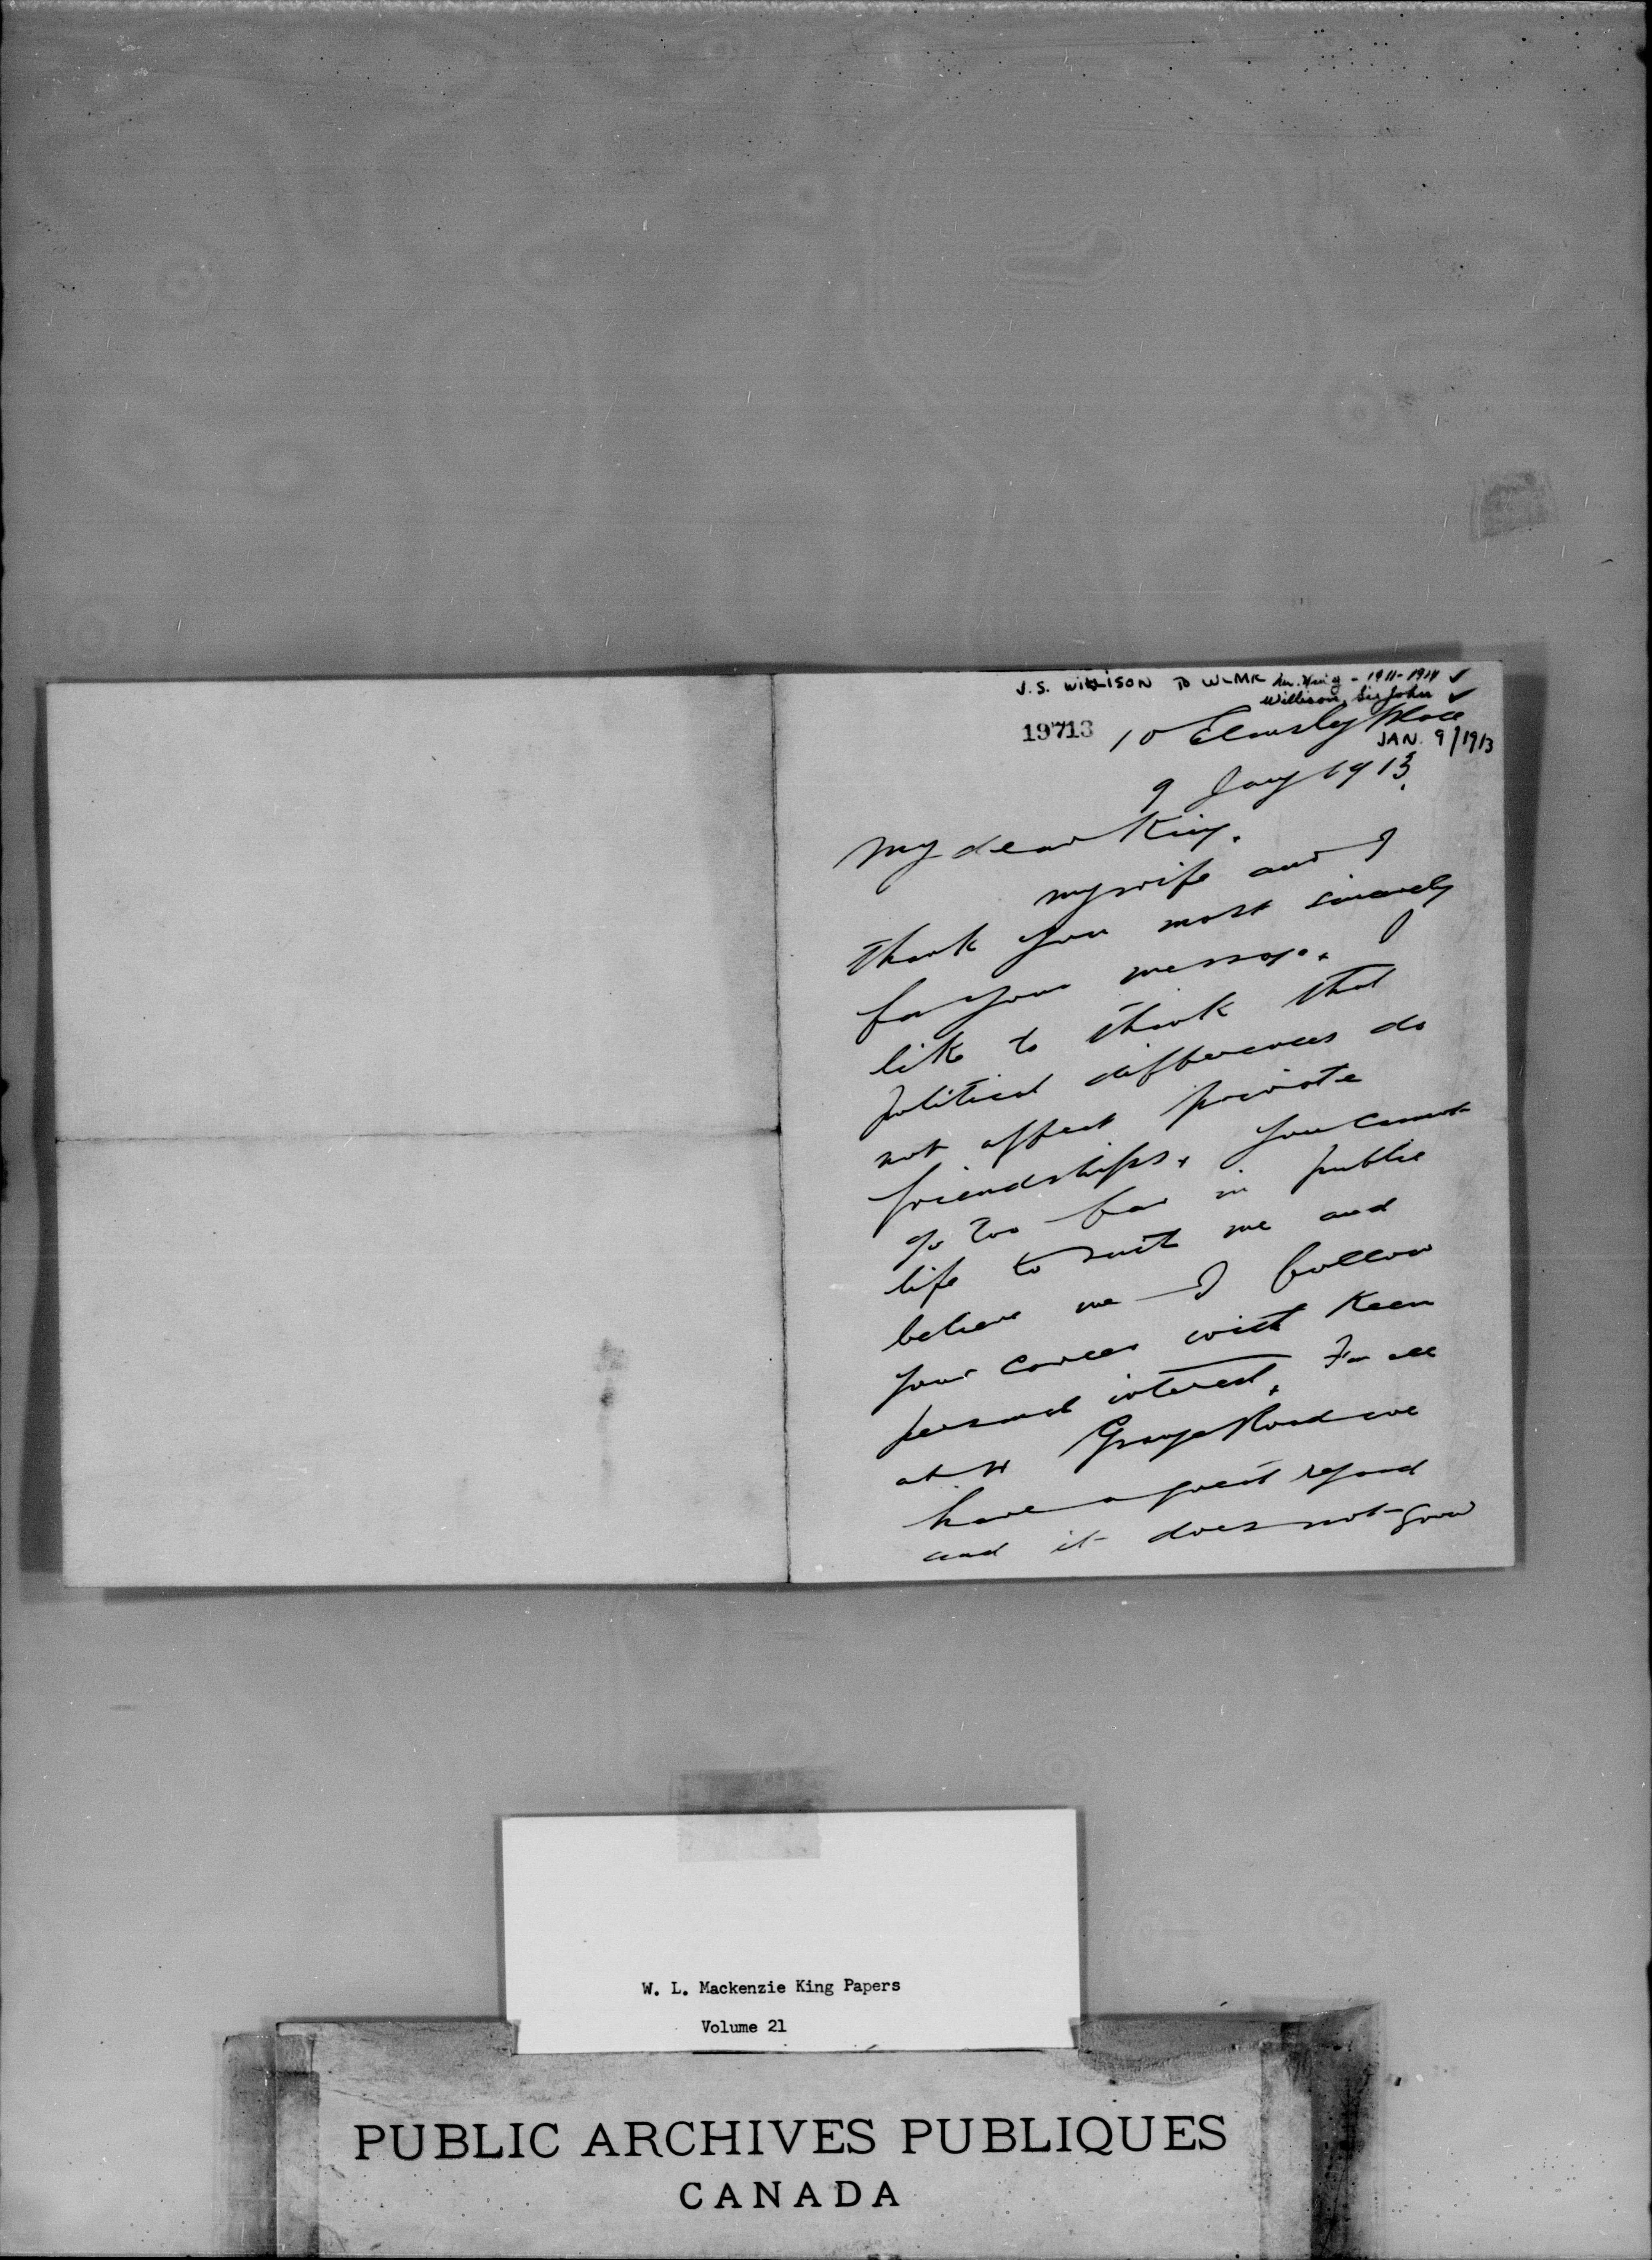 J.S. WILLISON TO WLMK Mr. King - 1911-1914 ✓
Willison, Sir John ✓
19713
10 Elmsley Place
JAN. 9/1913
9 Jany 1913.
My dear King.
My wife and I
thank you most sincerely
for your message. I
like to think that
political differences do
not affect private
friendships. You cannot
go too far in public
life to suit me and
believe me I follow
your career with keen
personal interest. For all
at Grange Road we
have a great regard
and it does not grow
W. L. Mackenzie King Papers
Volume 21
PUBLIC ARCHIVES PUBLIQUES
CANADA